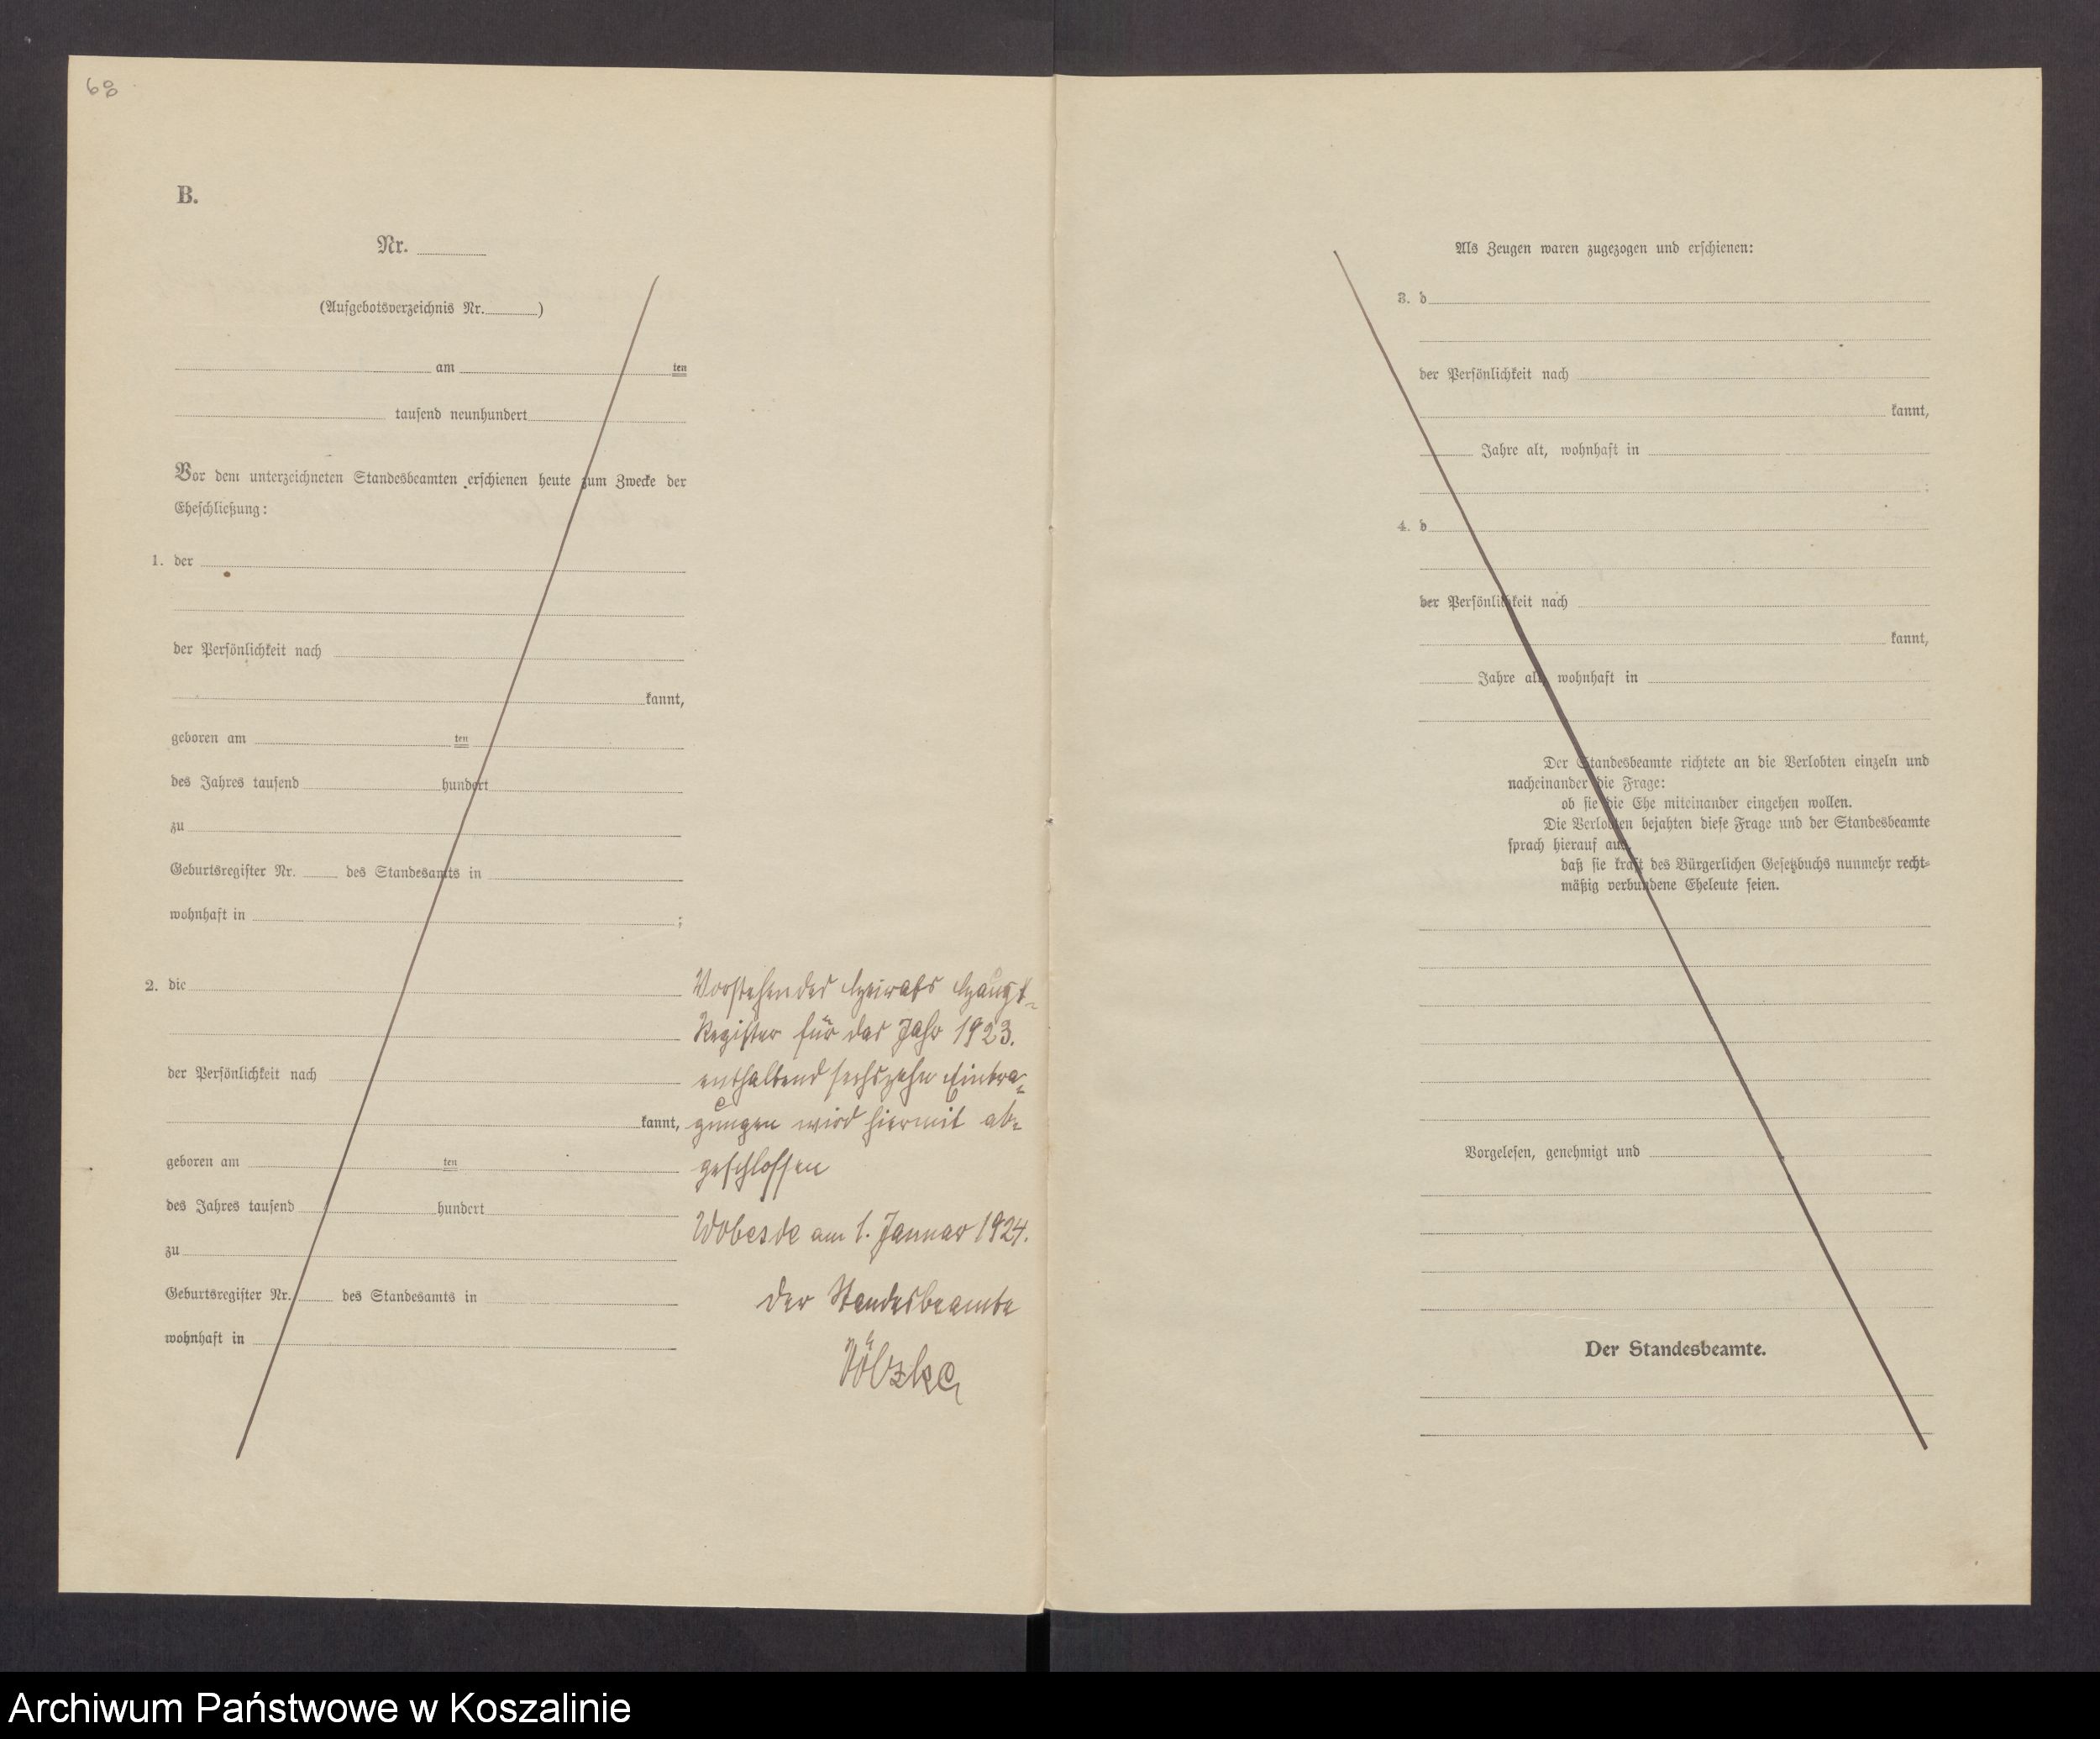 68
B.
Nr.
(Aufgebotsverzeichnis Nr. )
am ten
tausend neunhundert
Vor dem unterzeichneten Standesbeamten erschienen heute zum Zwecke der
Eheschließung:
1. der
der Persönlichkeit nach
kannt,
geboren am ten
des Jahres tausend hundert
zu
Geburtsregister Nr. des Standesamts in
wohnhaft in ;
2. die
der Persönlichkeit nach
kannt,
geboren am ten
des Jahres tausend hundert
zu
Geburtsregister Nr. des Standesamts in
wohnhaft in
Vorstehendes Heirats Haupt-
Register für das Jahr 1923.
enthaltend sechszehn Eintra-
gungen wird hiermit ab-
geschlossen
Wobesde am 1. Januar 1924.
Der Standesbeamte
Völzke
Als Zeugen waren zugezogen und erschienen:
3. d
der Persönlichkeit nach
kannt,
Jahre alt, wohnhaft in
4. d
der Persönlichkeit nach
kannt,
Jahre alt, wohnhaft in
Der Standesbeamte richtete an die Verlobten einzeln und
nacheinander die Frage:
ob sie die Ehe miteinander eingehen wollen.
Die Verlobten bejahten diese Frage und der Standesbeamte
sprach hierauf aus,
daß sie kraft des Bürgerlichen Gesetzbuchs nunmehr recht-
mäßig verbundene Eheleute seien.
Vorgelesen, genehmigt und
Der Standesbeamte.
Archiwum Państwowe w Koszalinie